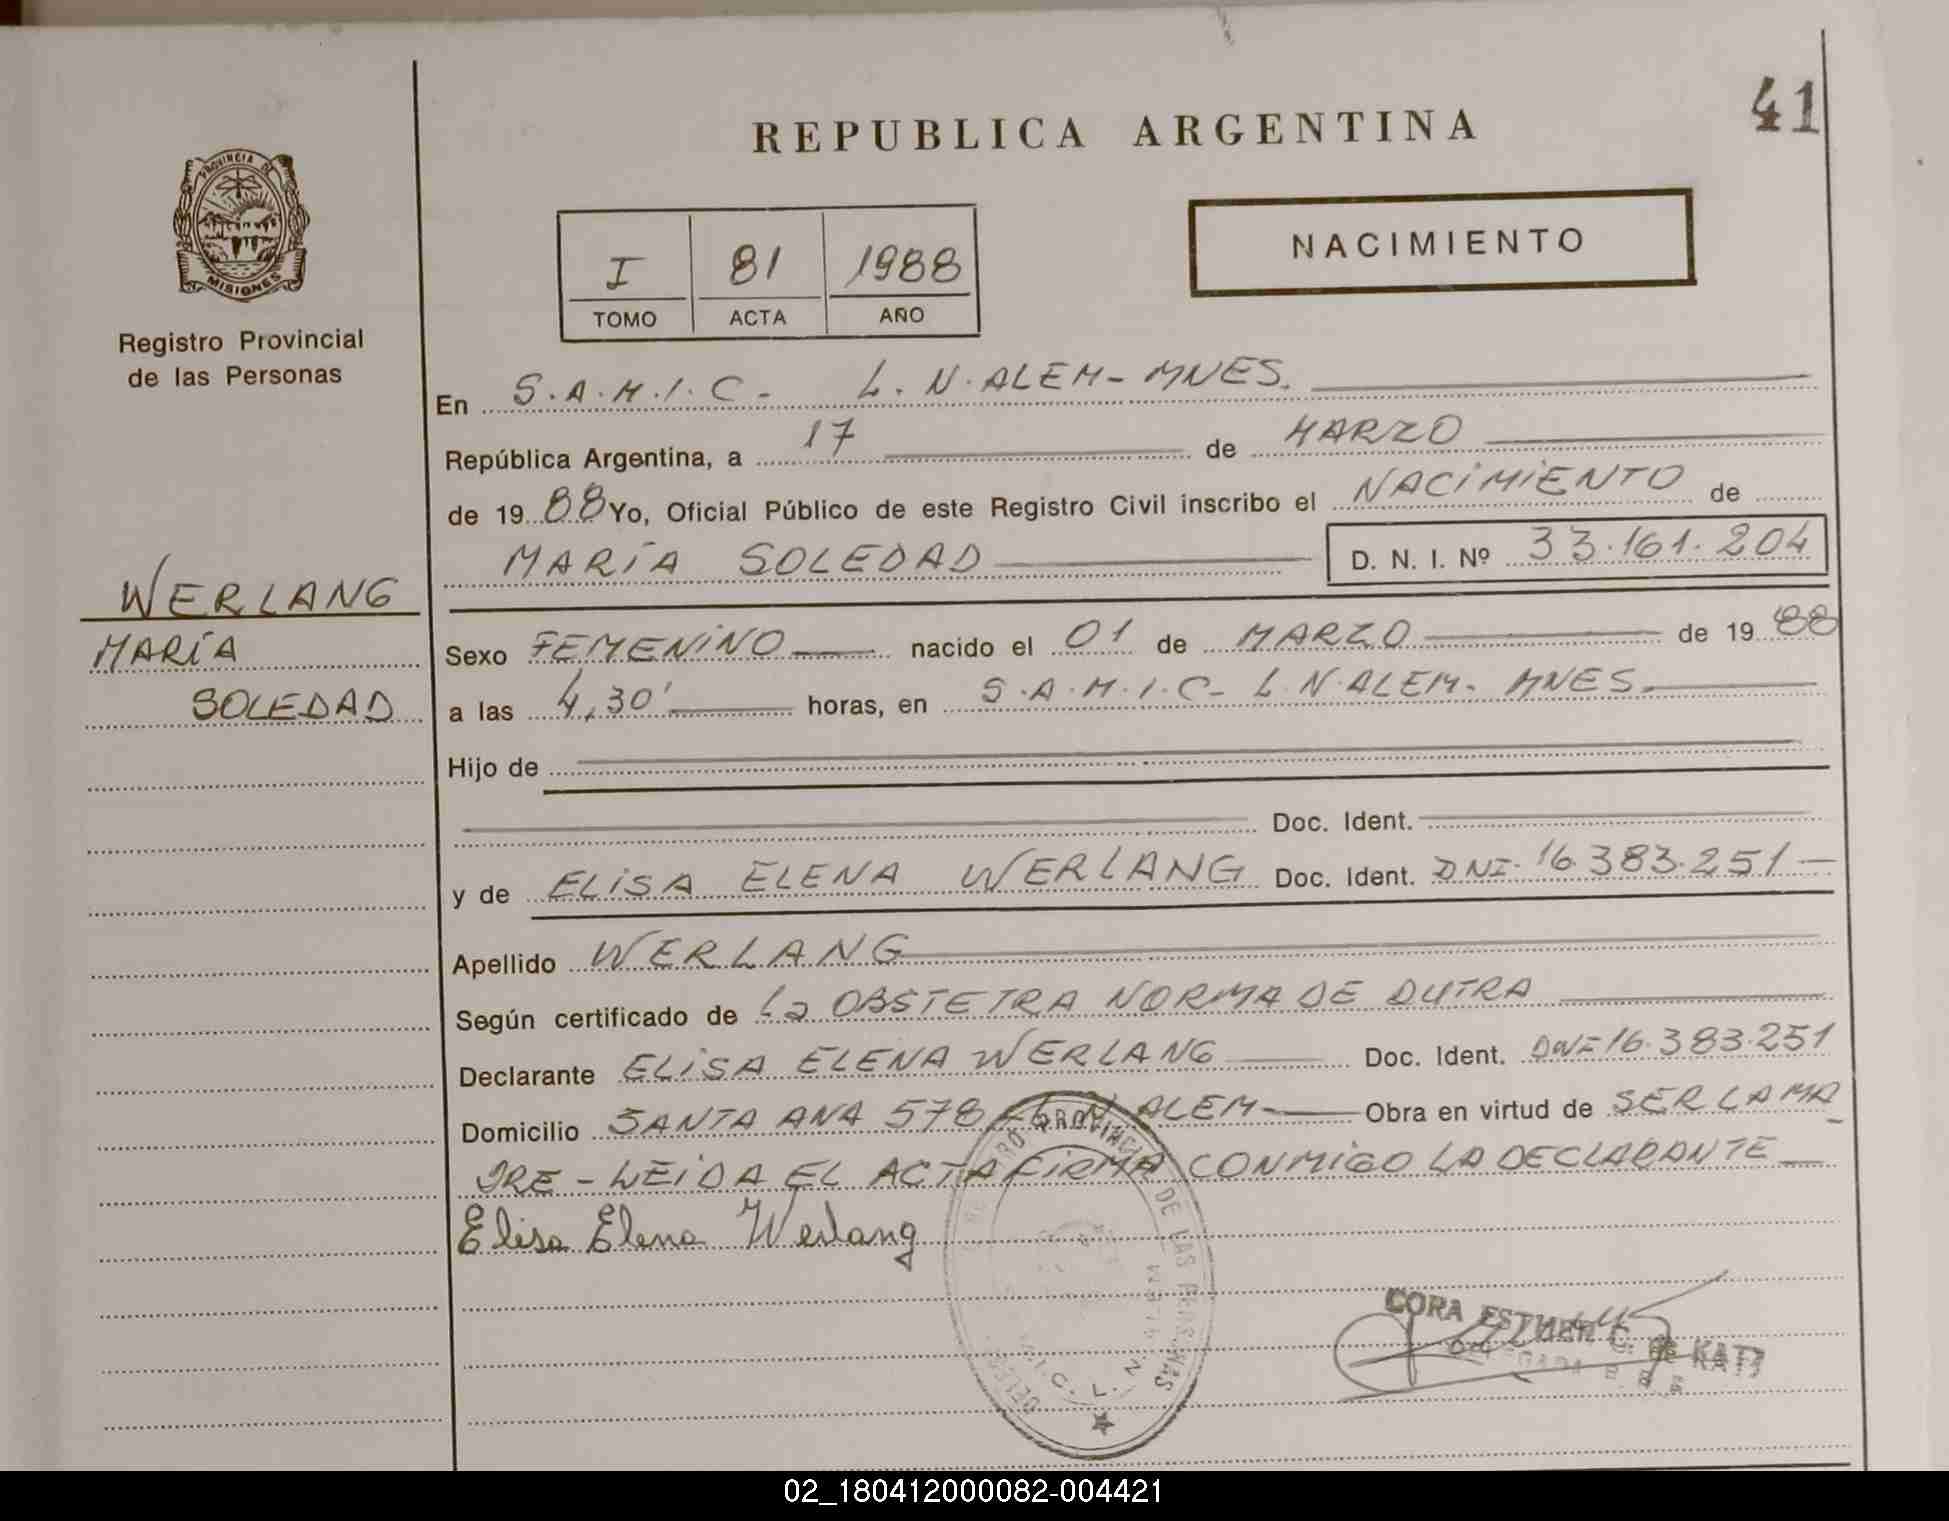 41
REPUBLICA ARGENTINA
PROVINCIA DE
MISIONES
Registro Provincial
de las Personas
I 81 1988
TOMO ACTA AÑO
NACIMIENTO
En S.A.M.I.C- L.N.ALEM-MNES.
República Argentina, a 17 de MARZO
de 1988 Yo, Oficial Público de este Registro Civil inscribo el NACIMIENTO de
MARÍA SOLEDAD D. N. I. Nº 33.161.204
WERLANG
MARÍA
SOLEDAD
Sexo FEMENINO nacido el 01 de MARZO de 1988
a las 4,30' horas, en S.A.M.I.C- L.N.ALEM- MNES.
Hijo de
Doc. Ident.
y de ELISA ELENA WERLANG Doc. Ident. DNI-16.383.251-
Apellido WERLANG
Según certificado de la OBSTETRA NORMA DE DUTRA
Declarante ELISA ELENA WERLANG Doc. Ident. DNI-16.383.251
Domicilio SANTA ANA 578-L.N.ALEM- Obra en virtud de SER LA MA
DRE-LEIDA EL ACTA FIRMA CONMIGO LA DECLARANTE
Elisa Elena Werlang
PROVINCIAL DE LAS PERSONAS
CORA ESTHER C. de
02_180412000082-004421